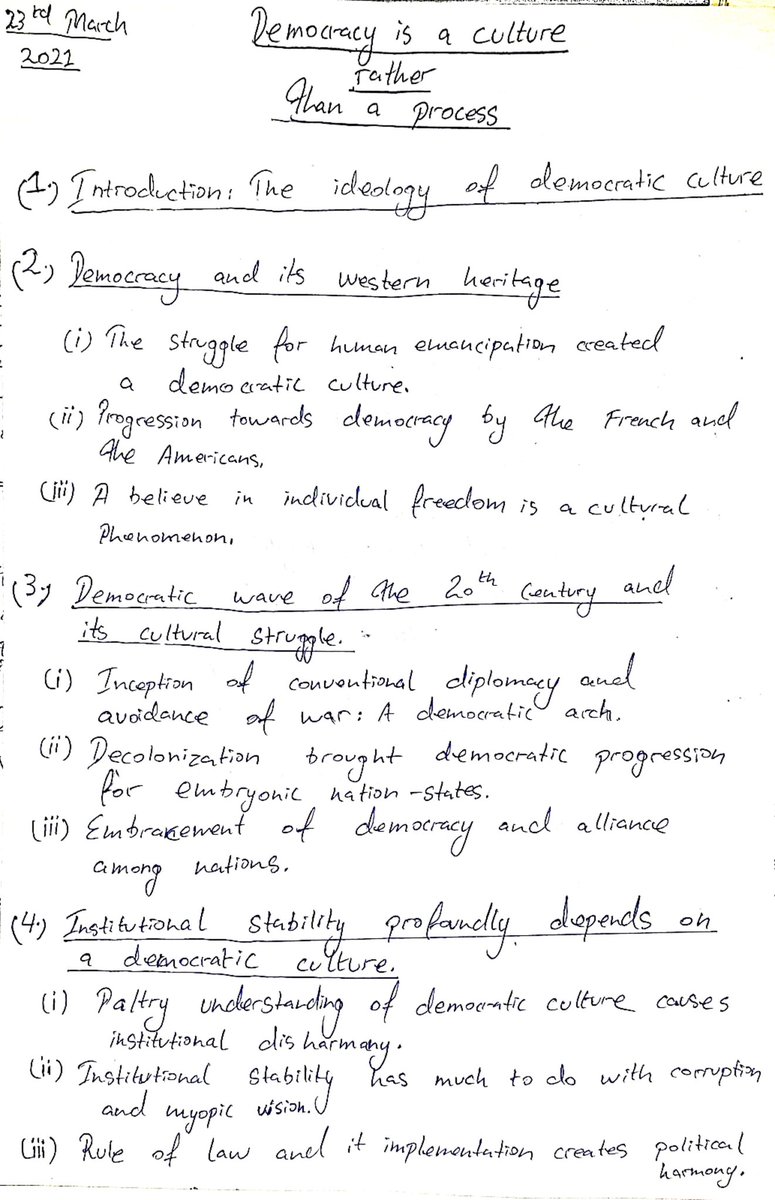 23rd March
2021
Democracy is a culture
rather
than a process
(1.) Introduction: The ideology of democratic culture
(2.) Democracy and its western heritage
(i) The struggle for human emancipation created
a democratic culture.
(ii) Progression towards democracy by the French and
the Americans.
(iii) A believe in individual freedom is a cultural
Phenomenon.
(3.) Democratic wave of the 20th Century and
its cultural struggle.
(i) Inception of conventional diplomacy and
avoidance of war: A democratic arch.
(ii) Decolonization brought democratic progression
for embryonic nation-states.
(iii) Embracement of democracy and alliance
among nations.
(4.) Institutional stability profoundly depends on
a democratic culture.
(i) Paltry understanding of democratic culture causes
institutional disharmony.
(ii) Institutional stability has much to do with corruption
and myopic vision.
(iii) Rule of law and it implementation creates political
harmony.